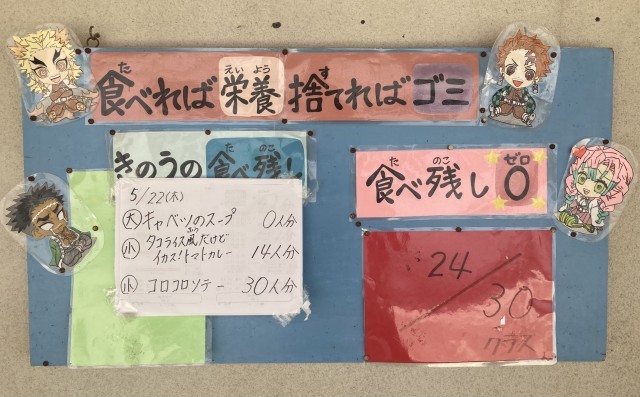 食べれば栄養 捨てればゴミ
きのうの食べ残し
食べ残し0
5/22(木)
大 キャベツのスープ 0人分
小 タコライス風だけど
イカス!トマトカレー 14人分
小 コロコロソテー 30人分
24/30
クラス